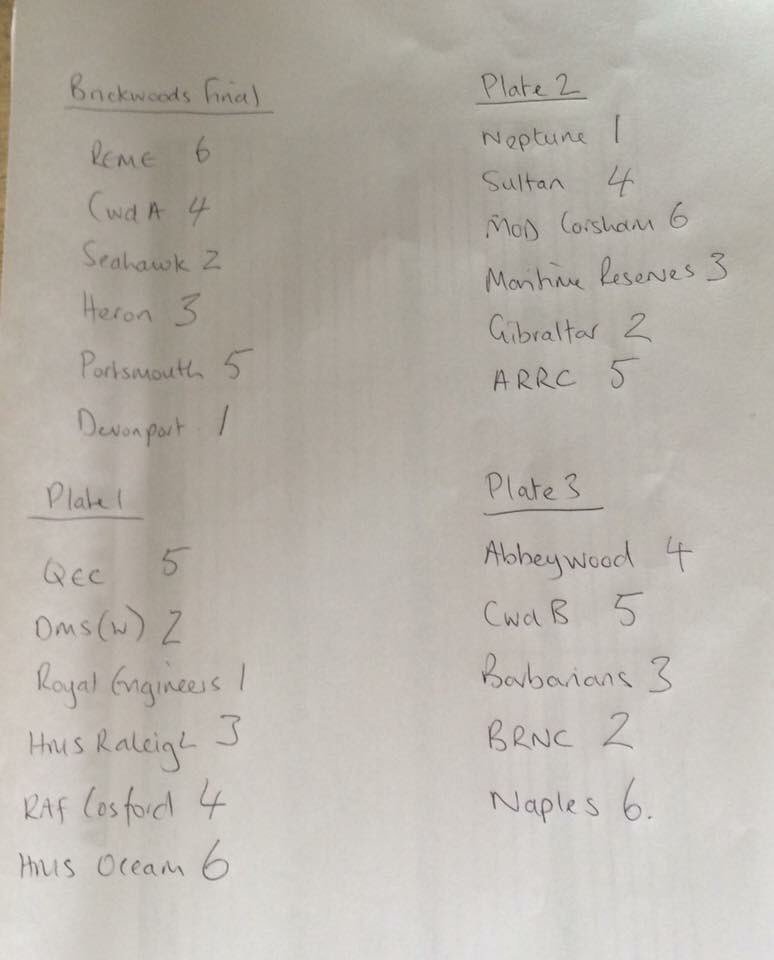 Brickwoods Final
REME 6
CwdA 4
Seahawk 2
Heron 3
Portsmouth 5
Devonport 1
Plate 1
QEC 5
DMS(W) 2
Royal Engineers 1
HMS Raleigh 3
RAF Cosford 4
HMS Ocean 6
Plate 2
Neptune 1
Sultan 4
MOD Corsham 6
Maritime Reserves 3
Gibraltar 2
ARRC 5
Plate 3
Abbeywood 4
Cwd B 5
Barbarians 3
BRNC 2
Naples 6.